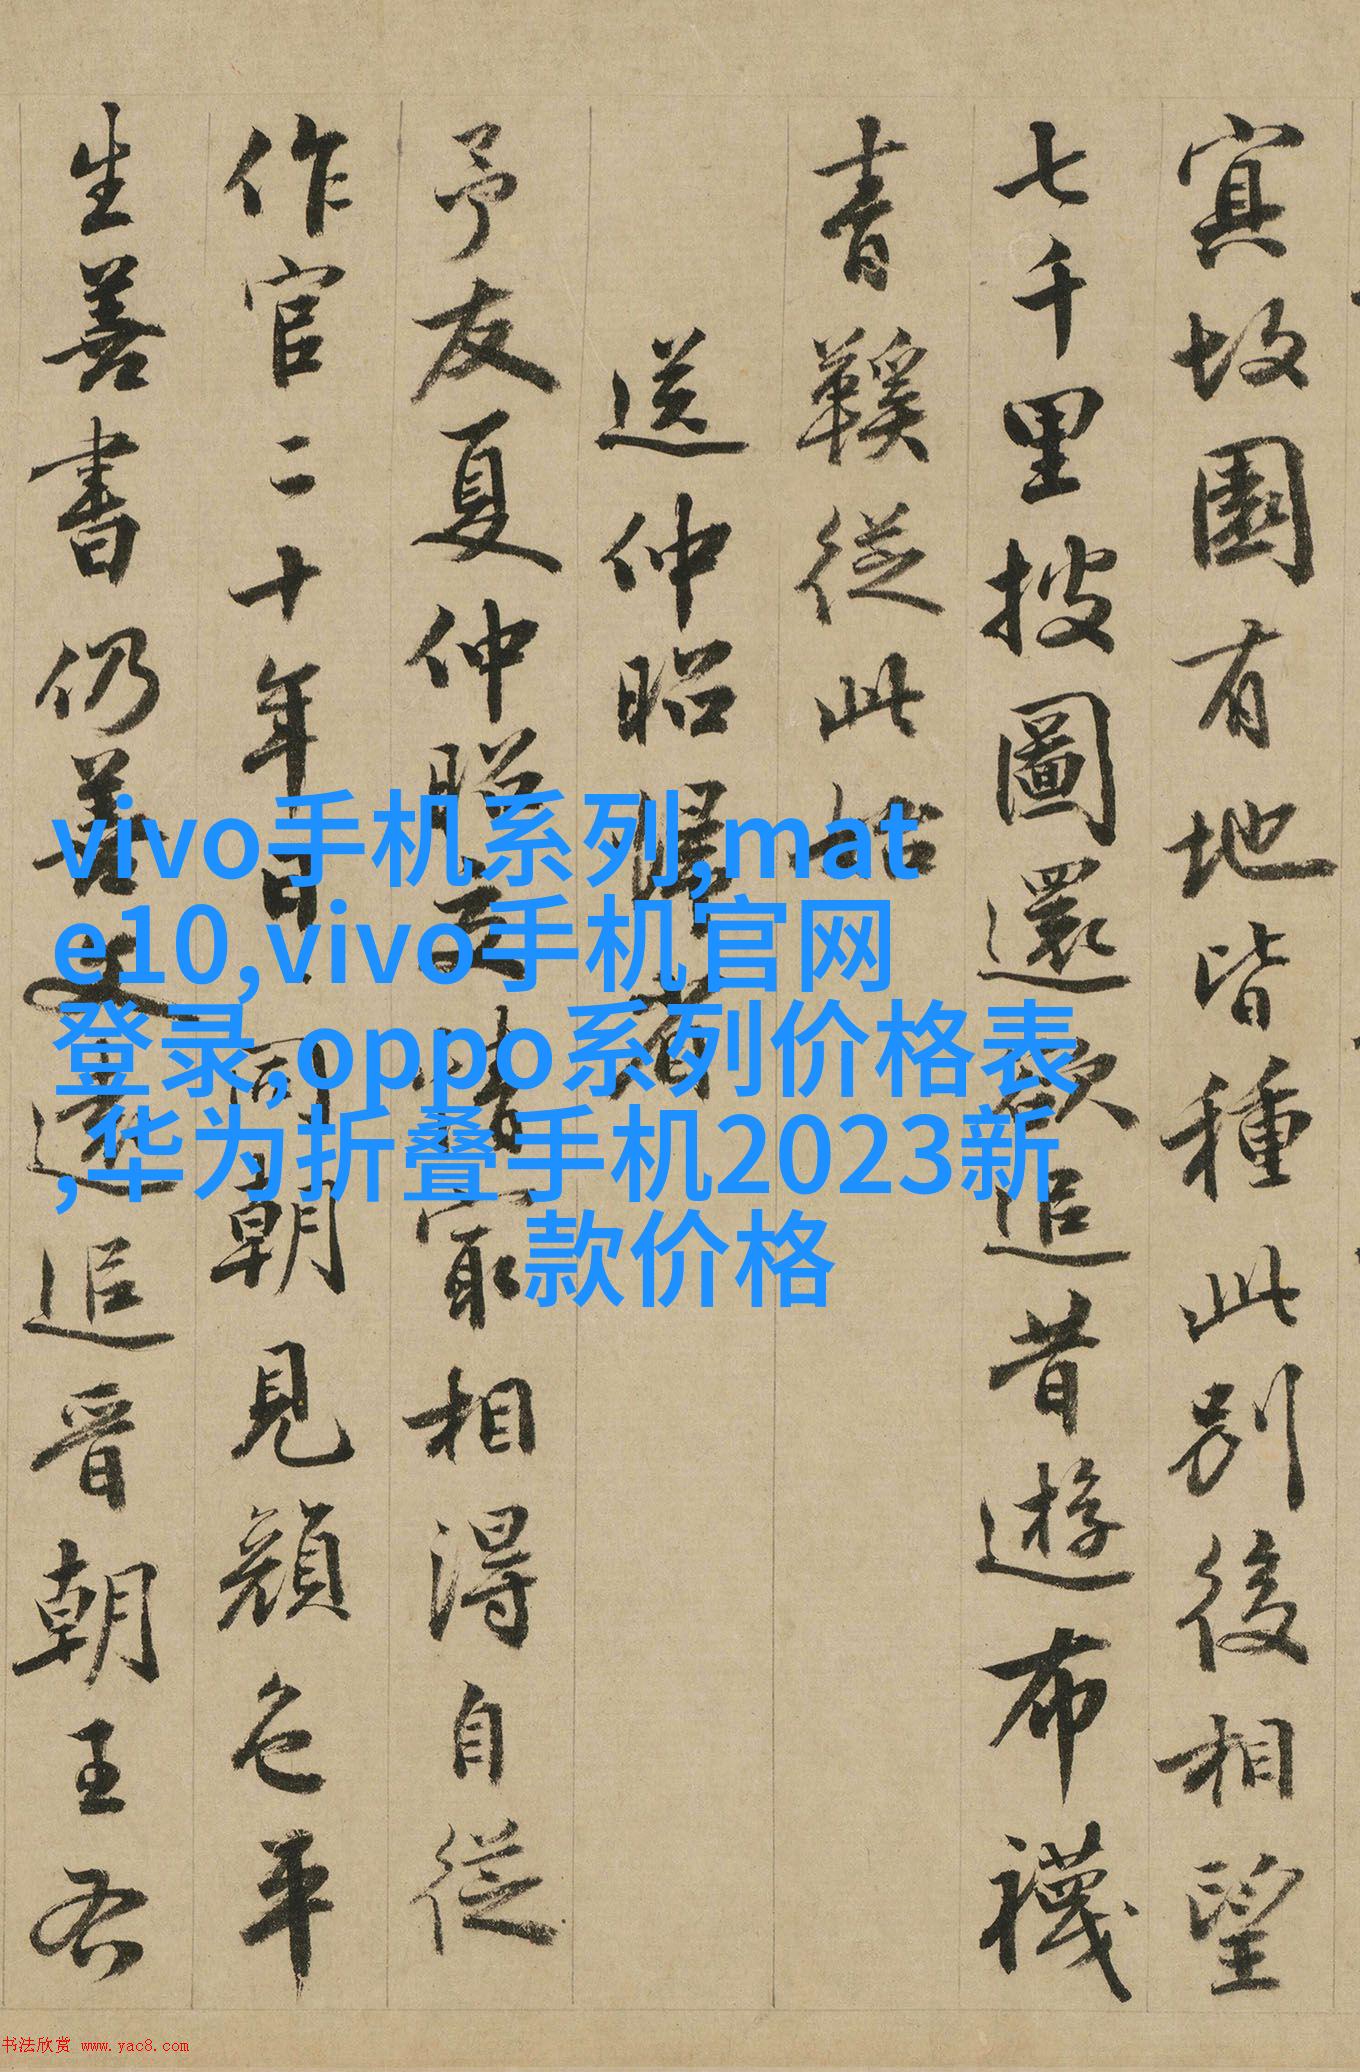 故園有地皆種此別後相望
七千里披圖還欲追昔遊布襪
青鞵從此始
送仲昭歸省
予友夏仲昭交情最相得自從
作官二十年日日同朝見顏色平
生善書仍善文遠追晉朝王右
vivo手机系列,mat
e10,vivo手机官网
登录,oppo系列价格表
,华为折叠手机2023新
款价格
书法欣赏 www.yac8.com